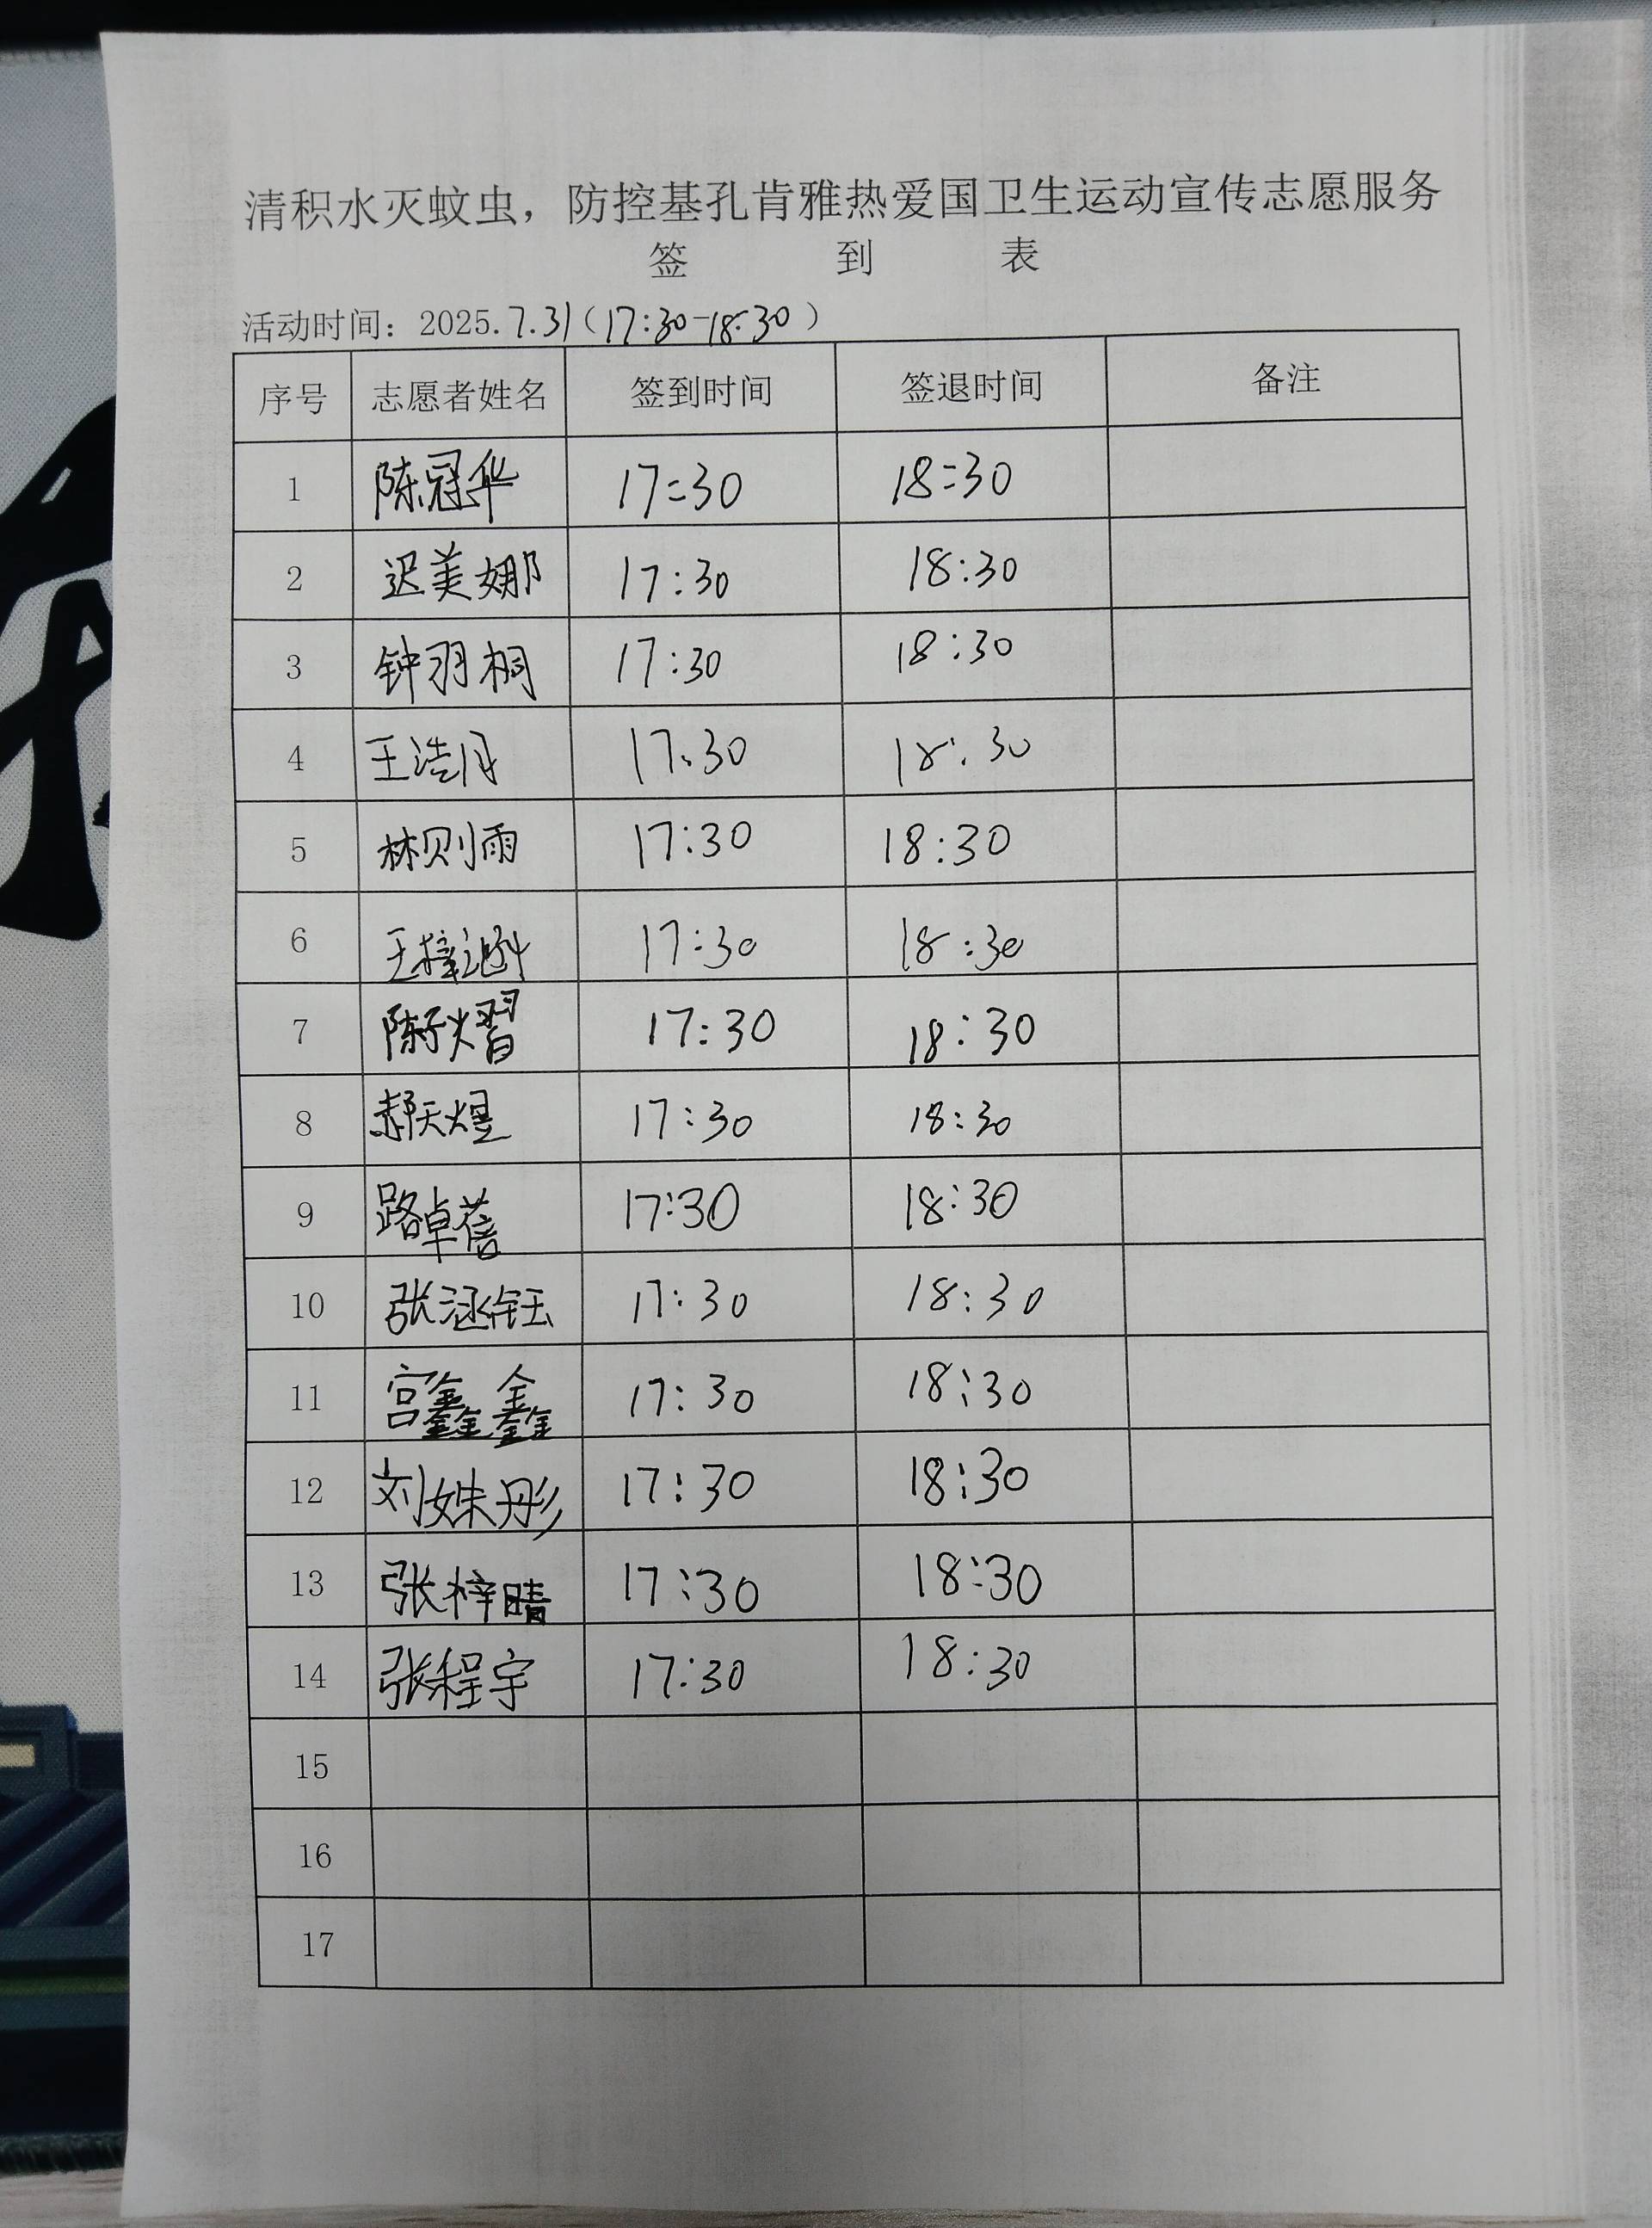 清积水灭蚊虫，防控基孔肯雅热爱国卫生运动宣传志愿服务
签 到 表
活动时间：2025.7.31（17:30-18:30）
序号 志愿者姓名 签到时间 签退时间 备注
1 陈冠华 17:30 18:30
2 迟美娜 17:30 18:30
3 钟羽桐 17:30 18:30
4 王浩月 17:30 18:30
5 林则雨 17:30 18:30
6 王梓 17:30 18:30
7 陈子熠 17:30 18:30
8 郝天煜 17:30 18:30
9 路卓蓓 17:30 18:30
10 张涵钰 17:30 18:30
11 宫鑫鑫 17:30 18:30
12 刘姝彤 17:30 18:30
13 张梓晴 17:30 18:30
14 张程宇 17:30 18:30
15
16
17